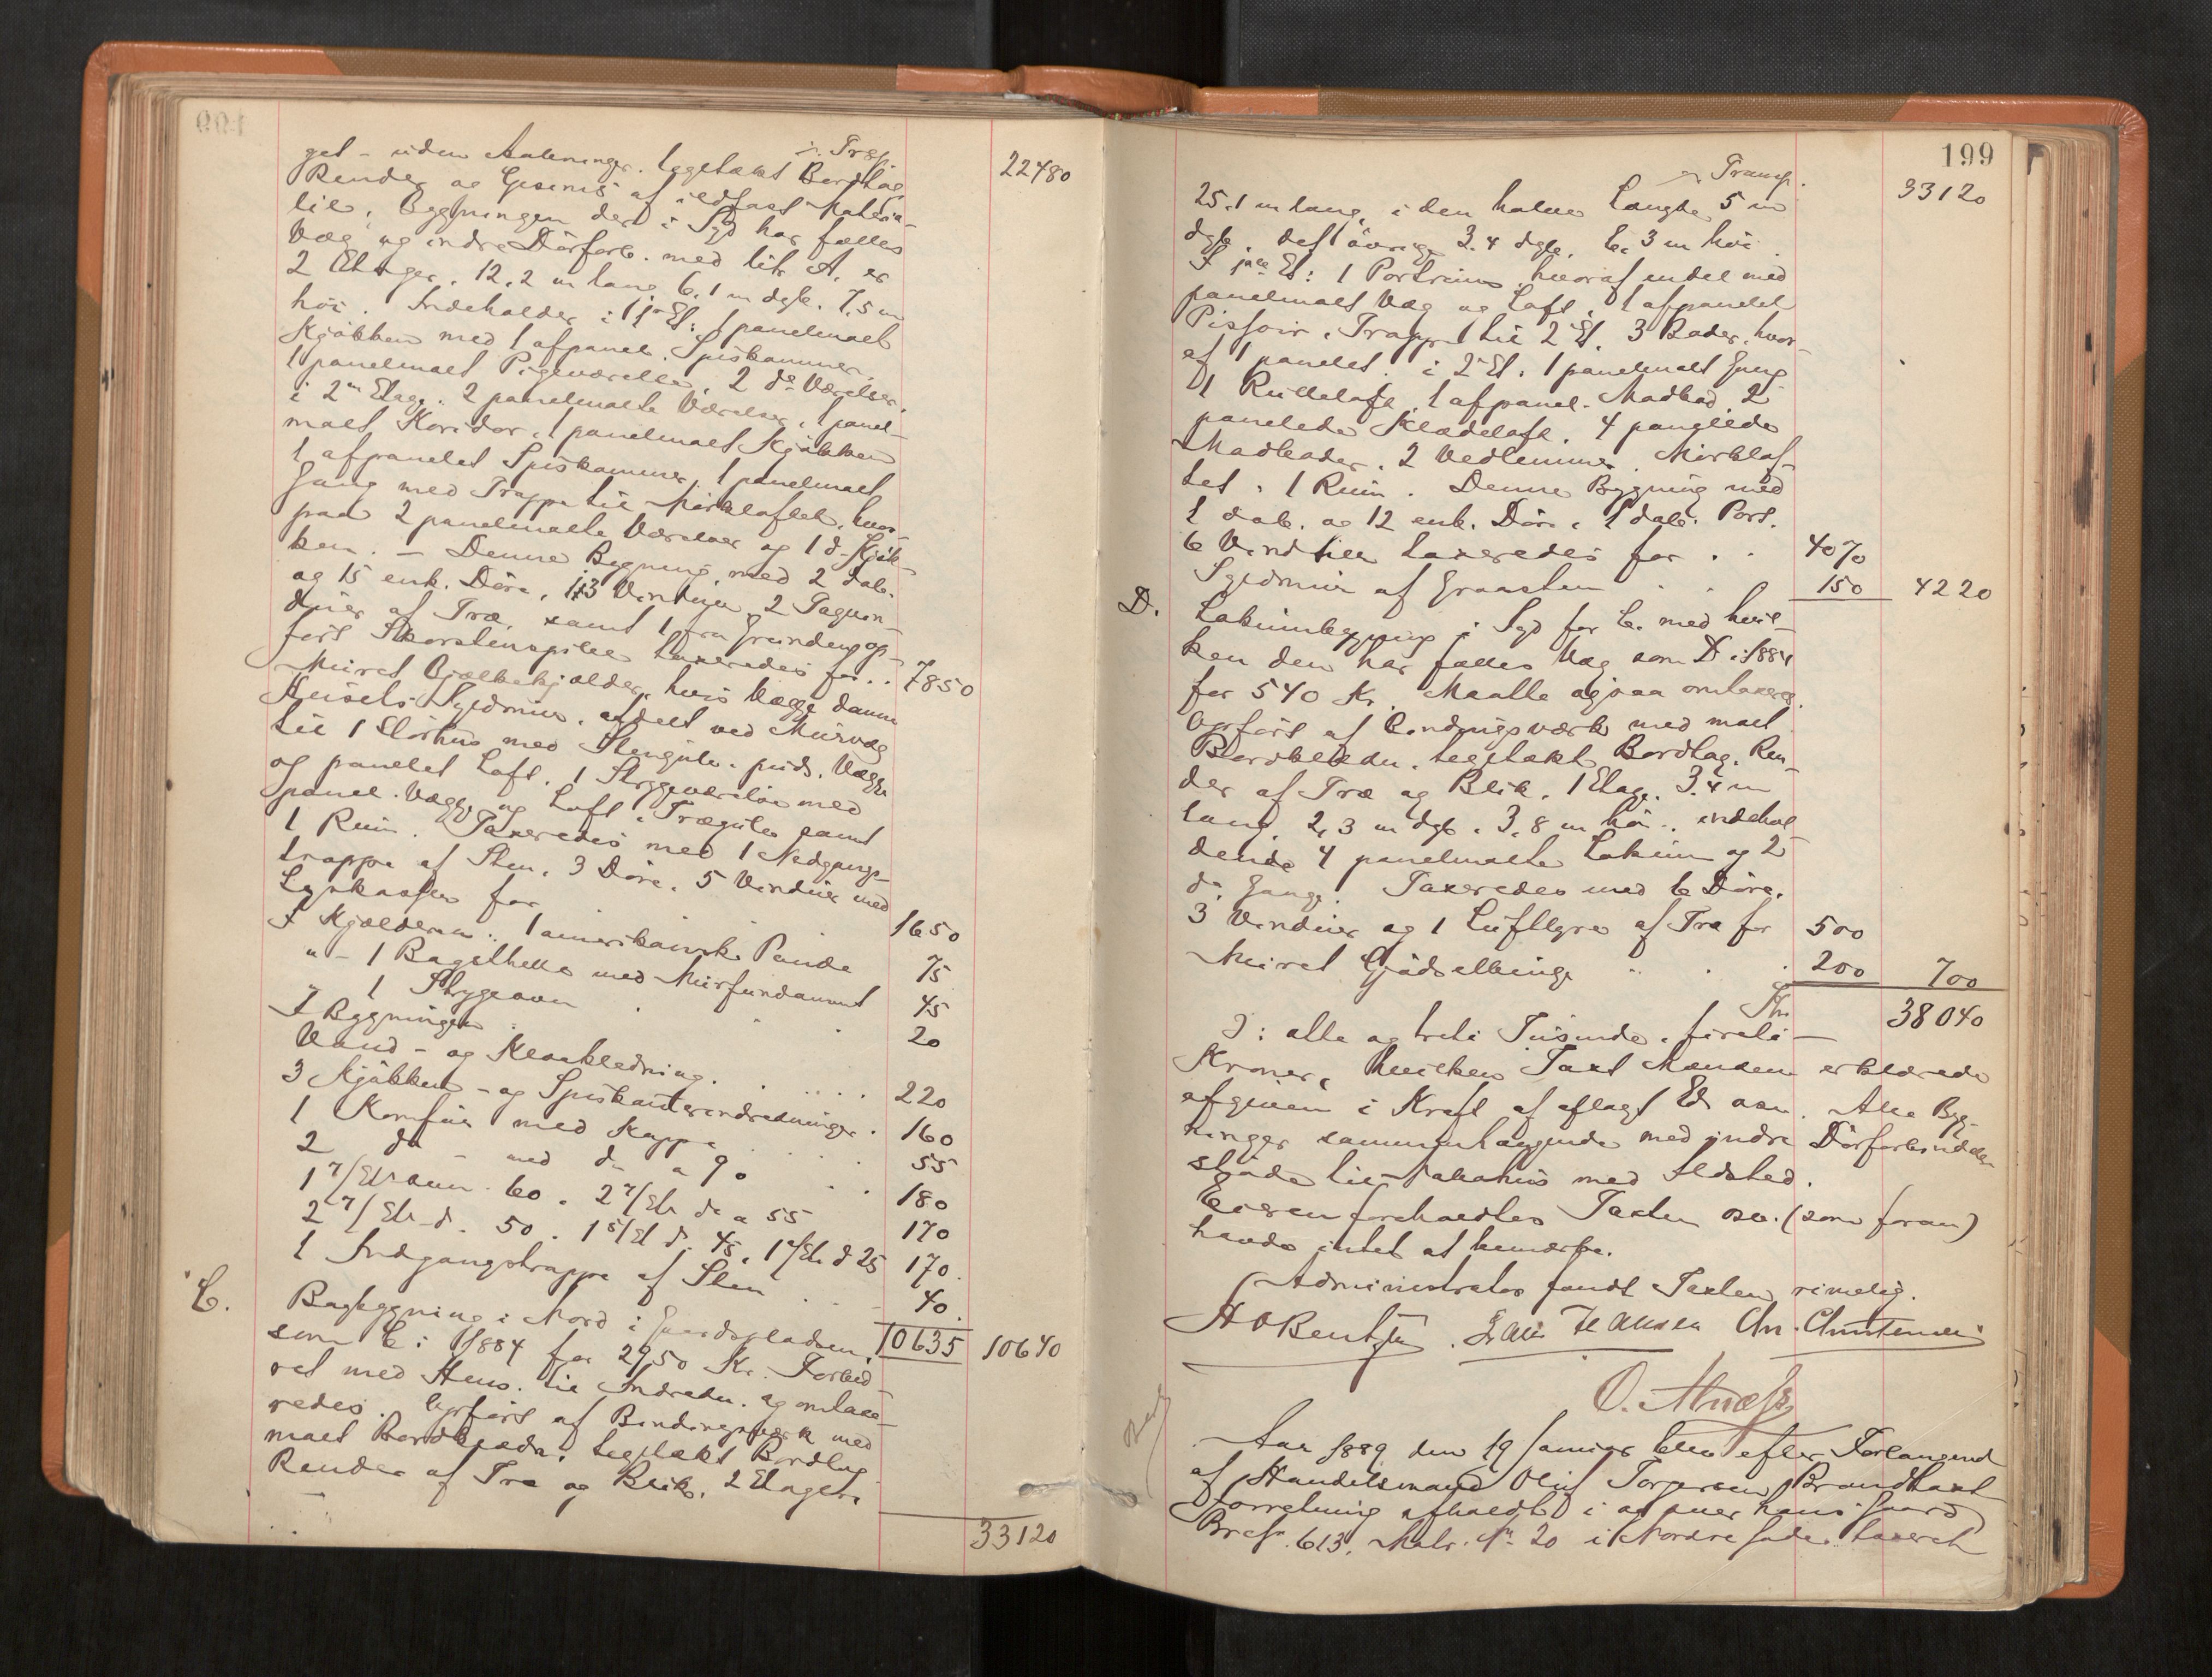 Trsp. 22480
get - uden Aabninger. tegltækt Bordtag
Render og Gesims af ildfast Materia-
lie. Bygningen der i Syd har fælles
Væg og indre Dörforb. med litr A. er
2 Etager. 12.2 m lang 6.1 m dyb. 7.5 m
höi. Indeholder i 1ste Et: 1 panelmalt
Kjökken med 1 afpanel. Spiskammer.
1 panelmalt Pigeværelse. 2 do Værelser.
i 2den Etage. 2 panelmalte Værelser. 1 panel-
malt Koridor. 1 panelmalt Kjökken
1 afpanelet Spiskammer. 1 panelmalt
Gang med Trappe til Mörkloftet, hvor-
paa 2 panelmalte Værelser og 1 d. Kjök-
ken. - Denne Bygning med 2 dob.
og 15 enk. Döre, 13 Vinduer, 2 Tagvin-
duer af Træ, samt 1 fra Grunden op-
fört Skorstenspibe taxeredes for . . 7850
Muret Bjælkekjælder, hvis Vægge danne
Husets Syldmur. afdelt ved Murvæg
til 1 Rörhus med Stengulv. puds. Vægge
og panelet Loft. 1 Strygeværelse med
panel. Vægge og Loft. Trægulv samt
1 Rum. Taxeredes med 1 Nedgangs-
trappe af Sten. 3 Döre. 5 Vinduer med
Lyskasser for 1650
I Kjælderen: 1 amerikansk Pande 75
" - 1 Bagethelle med Murfundament 45
" 1 Strygeovn . . . 20
I Bygningen
Vand- og Kloakledning . . . . . 220
3 Kjökken- og Spiskammerindretninger . 160
1 Komfur med Kappe . . . 55
2 do - med do a 90 . . 180
1 7/Et ovn 60. 2 7/Et do a 55 170
2 7/Et d. 50. 1 5/Et d. 45. 1 4/Et d 25 170.
1 Indgangstrappe af Sten . . 40.
10635 10640
C. Bagbygning i Nord i Gaardspladsen.
som C i 1884 for 2950 Kr. Forbed-
ret med Hens. til Indredn. og omtaxe-
redes. Opfört af Bindingsværk med
malt Bordklædn. tegltækt Bordtag
Render af Træ og Blik. 2 Etager.
33120
199
Transp. 33120
25.1 m lang, i den halve Længde 5 m
dyb. det övrige 3.4 dyb. 6.3 m höi
I 1ste Et: 1 Portrum hvoraf endel med
panelmalt Væg og Loft. 1 afpanelet
Pissoir. Trappe til 2 Et. 3 Boder. hvor-
af 1 panelet. i 2 Et. 1 panelmalt Gang
1 Rulleloft. 1 afpanel. Madbod. 2
panelede Klædeloft. 4 panelede
Madboder. 2 Vedlemmer. Mörklof-
tet. 1 Rum. Denne Bygning med
2 dob. og 12 enk. Döre. 1 dob. Port.
6 Vinduer taxeredes for . . 4070
Syldmur af Graasten . . 150 4220
D. Lokumbygning i Syd for C. med hvil-
ken den har fælles Væg som D i 1884
for 540 Kr. Maalte ogsaa omtaxeres.
Opfört af Bindingsværk med malt
Bordklædn. tegltækt Bordtag. Ren-
der af Træ og Blik. 1 Etage. 3.4 m
lang. 2.3 m dyb. 3.8 m höi. indehol-
dende 4 panelmalte Lokum og 2
do Gange. Taxeredes med 6 Döre.
3 Vinduer og 1 Luftlyre af Træ for 500
Muret Gjödselbinge . . . 200 700
Kr. 38040
ɔ: otte og treti Tusinde, firti -
Kroner, hvilken Taxt Mændene erklærede
afgiven i Kraft af aflagt Ed osv. Alle Byg-
ninger sammenhængende med indre Dörforbindelse
stöde til Nabohus med Ildsted.
Eieren foreholdtes Taxten osv. (som foran)
havde intet at bemærke.
Administrator fandt Taxten rimelig.
H O Bentzen. Lau Hansen Chr. Christensen
Aar 1889 den 19 Januar blev efter Forlangend
af Handelsmand Oluf Torgersen Brandtaxt
forretning afholdt i og over hans Gaard
Brefr. 613. Matr. No 20 i Nordregade. taxeret